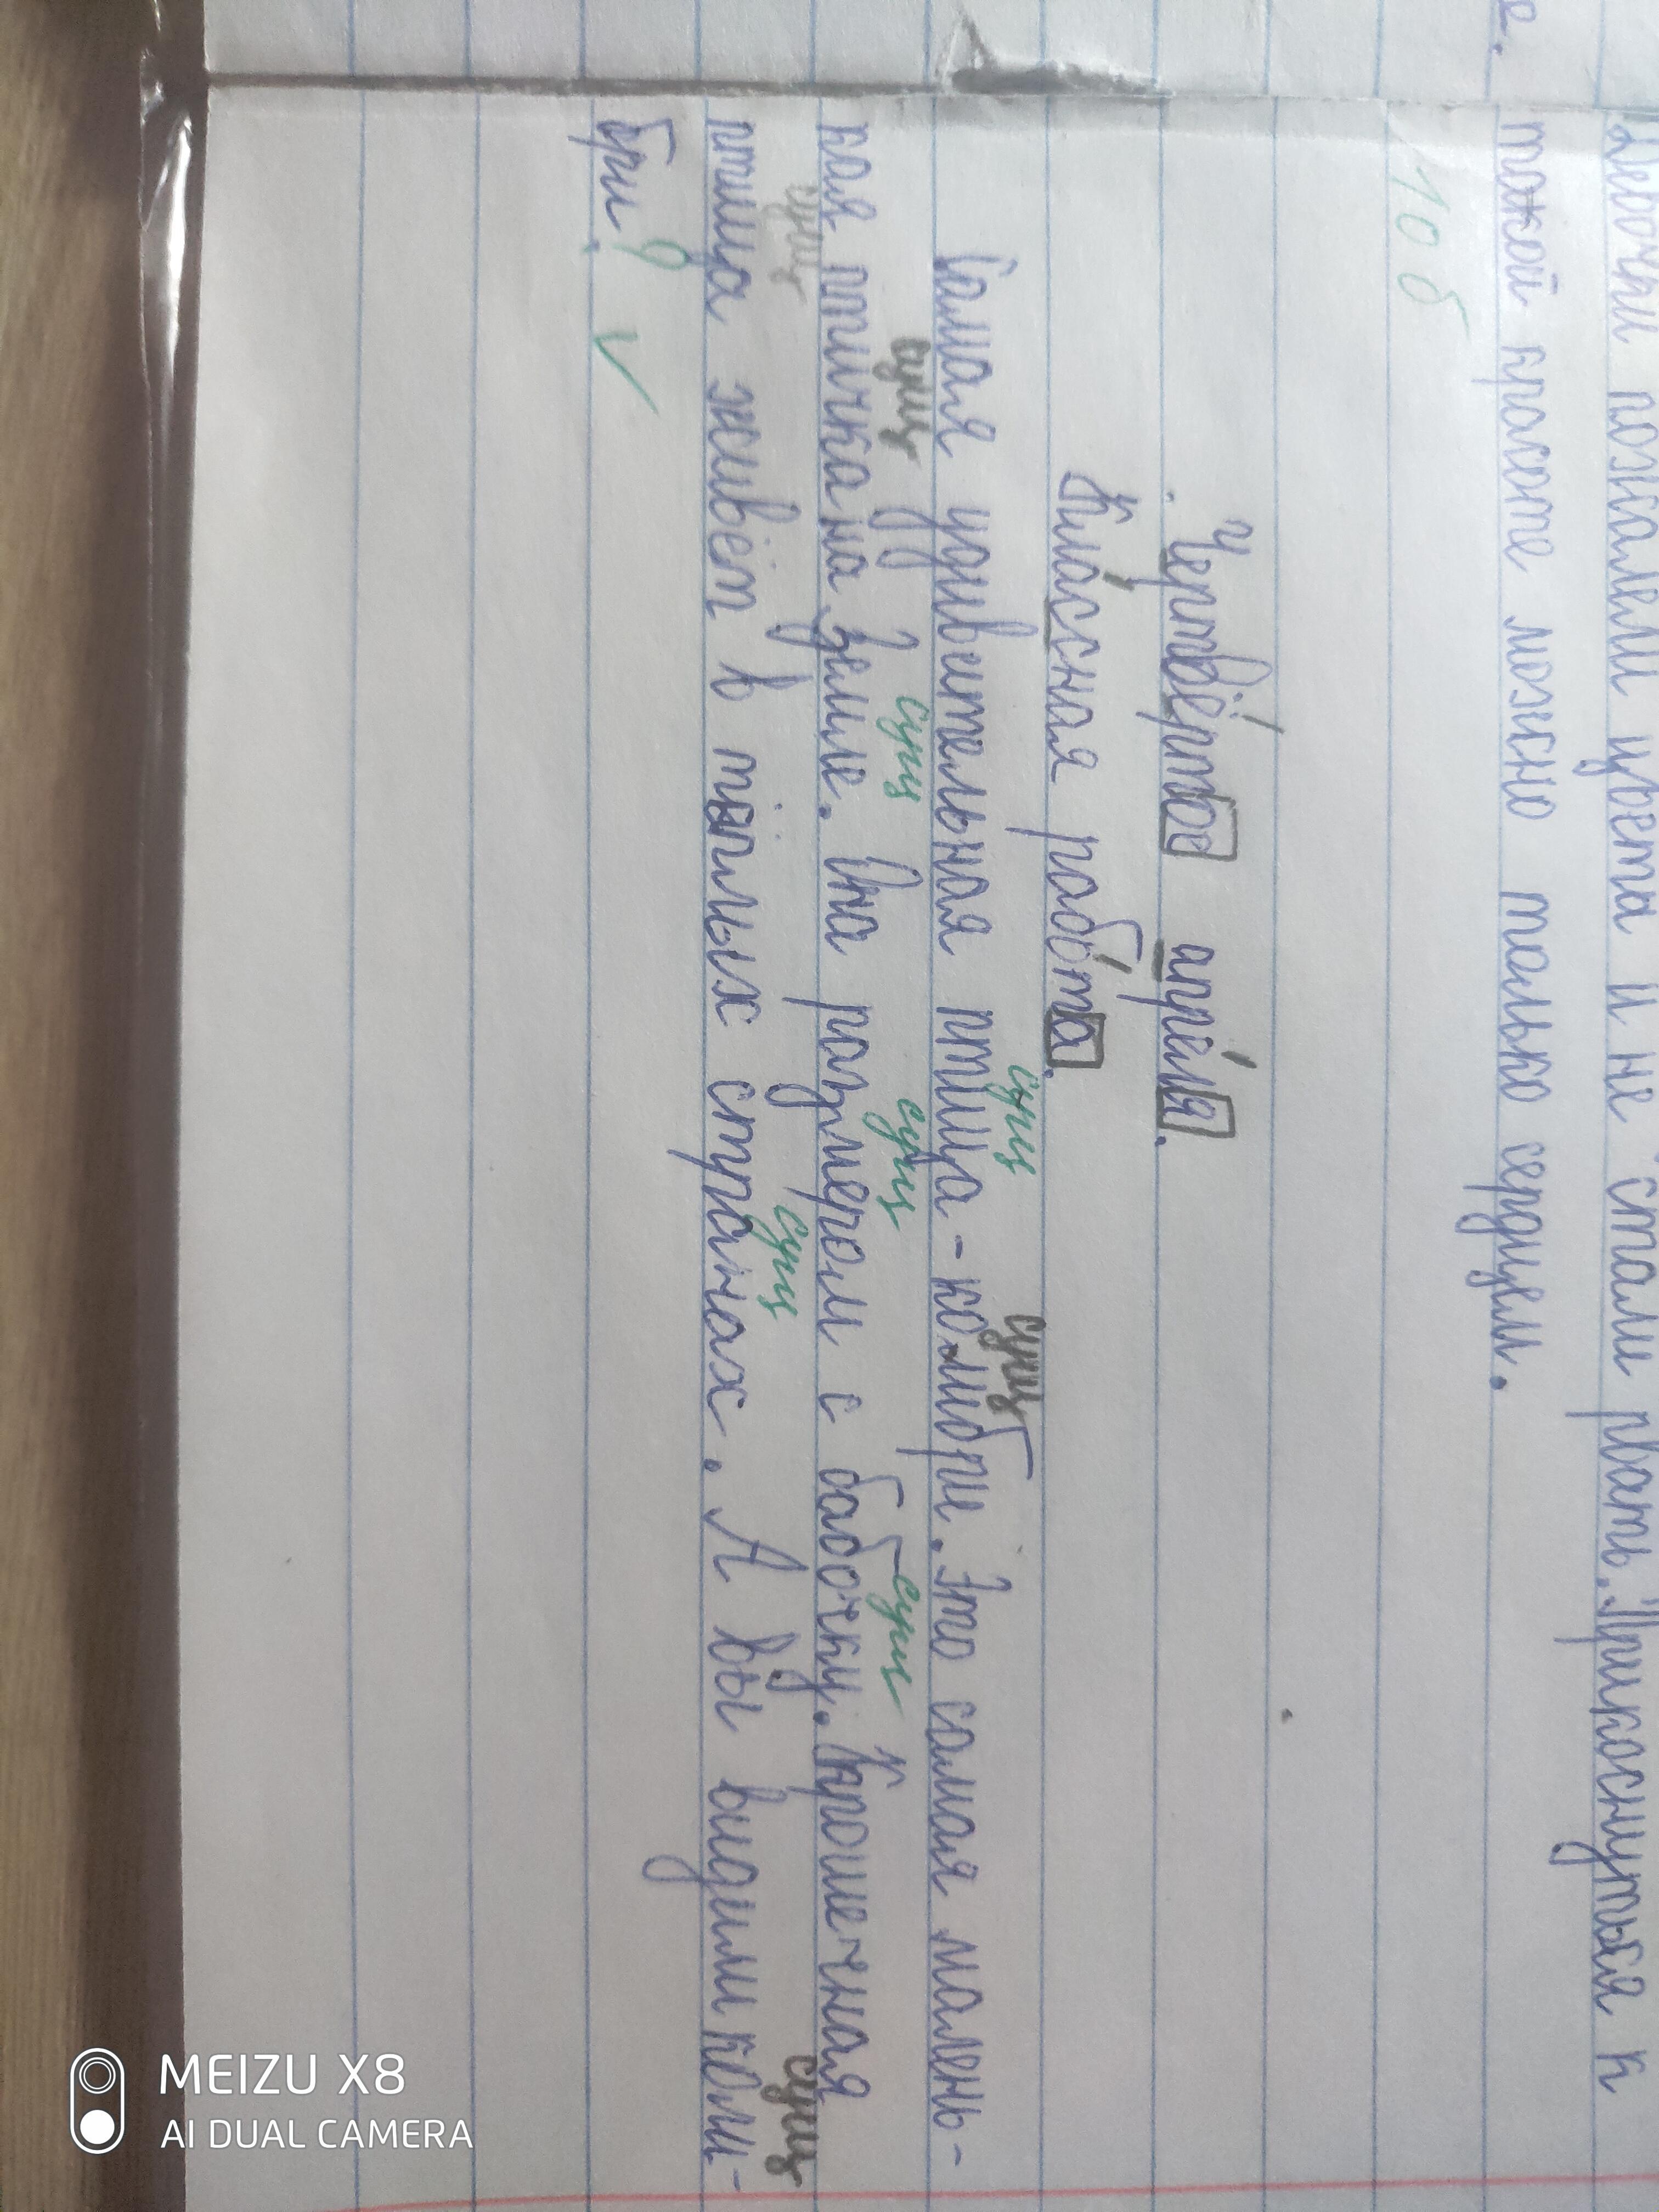 е.
Девочки пожалели цветы и не стали рвать. Прикоснуться к
такой красоте можно только сердцем.
10 б
Четвёртое апреля.
Классная работа.
сущ сущ
Самая удивительная птица - колибри. Это самая малень-
сущ сущ сущ сущ
кая птичка на земле. Она размером с бабочку. Крошечная
сущ сущ сущ
птица живёт в тёплых странах. А вы видим коли-
бри?
MEIZU X8
AI DUAL CAMERA